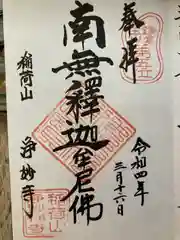 奉拝
南無釋迦牟尼佛
稲荷山
浄妙寺
令和四年
三月十六日
稲荷山